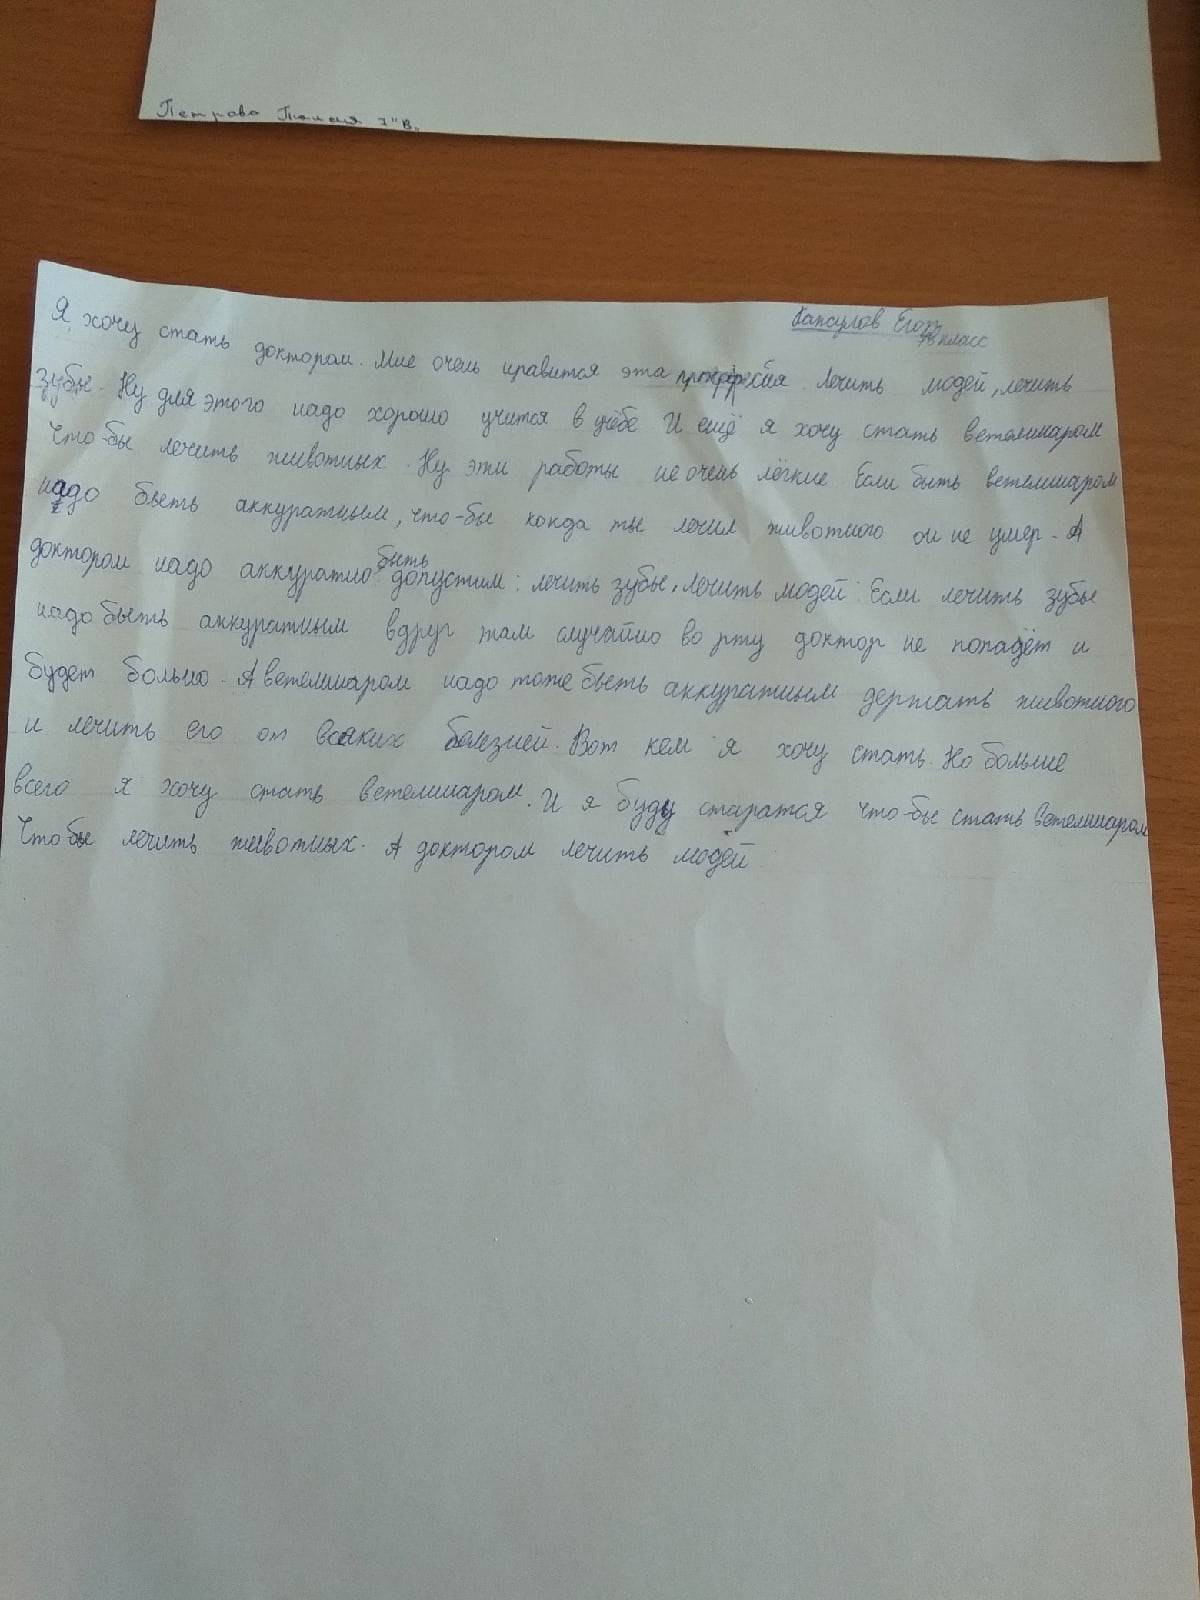 Петрова 7"В.
Капсулов Егор
7в класс
Я хочу стать доктором. Мне очень нравится эта професия. Лечить людей, лечить
зубы. Ну для этого надо хорошо учится в учёбе И ещё я хочу стать ветелинаром
Что-бы лечить животных. Ну эти работы не очень лёгкие Если быть ветелинаром
надо быть аккуратным, что-бы когда ты лечил животного он не умер. А
доктором надо аккуратно быть допустим: лечить зубы, лечить людей. Если лечить зубы
надо быть аккуратным вдруг там случайно во рту доктор не попадёт и
будет больно. А ветелинаром надо тоже быть аккуратным держать животного
и лечить его от всяких болезней. Вот кем я хочу стать. Но больше
всего я хочу стать ветелинаром. И я буду старатся что-бы стать ветелинаром
Чтобы лечить животных. А доктором лечить людей.